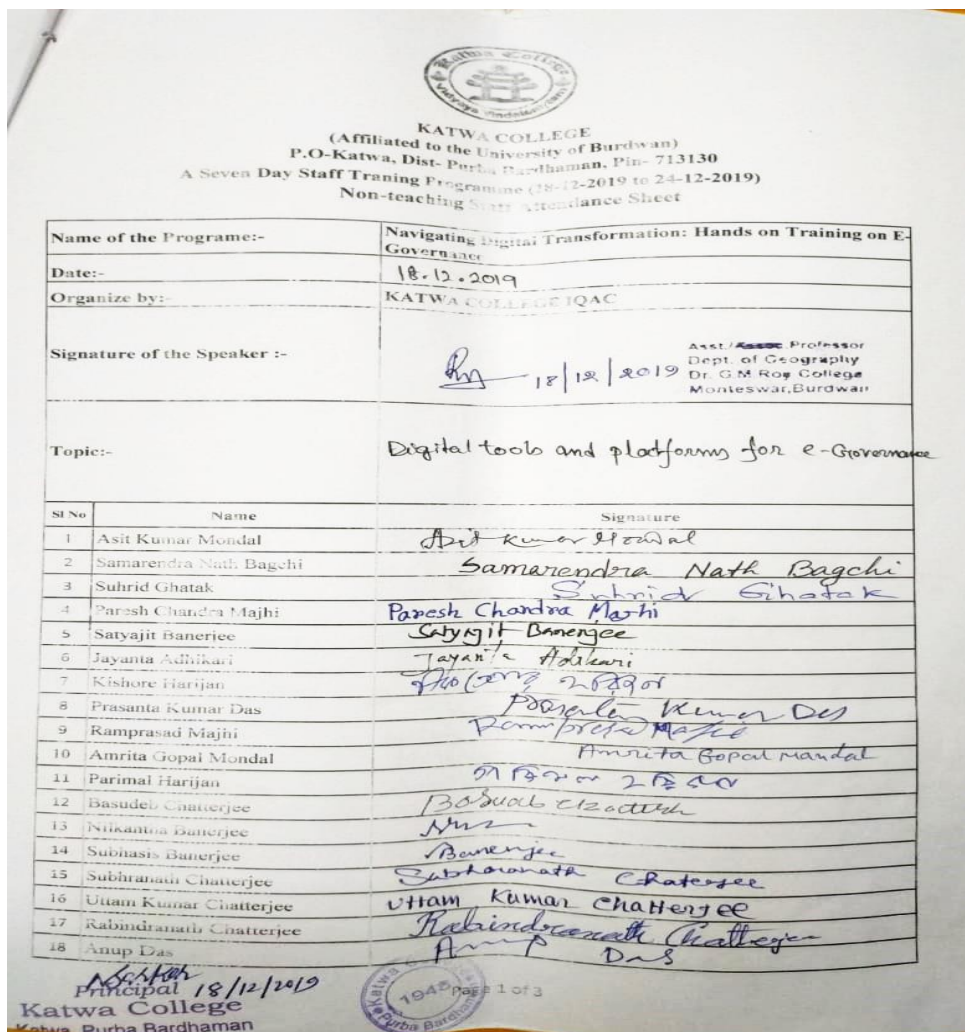 Katwa College
Vidyaya Vindateamritam
KATWA COLLEGE
(Affiliated to the University of Burdwan)
P.O-Katwa, Dist- Purba Bardhaman, Pin- 713130
A Seven Day Staff Traning Programme (18-12-2019 to 24-12-2019)
Non-teaching Staff Attendance Sheet
Name of the Programe:- Navigating Digital Transformation: Hands on Training on E-
Governance
Date:- 18.12.2019
Organize by:- KATWA COLLEGE IQAC
Signature of the Speaker :- 18/12/2019
Asst./Assoc. Professor
Dept. of Geography
Dr. G.M Roy College
Monteswar,Burdwan
Topic:- Digital tools and platforms for e-Governance
Sl No Name Signature
1 Asit Kumar Mondal Asit Kumar Mondal
2 Samarendra Nath Bagchi Samarendra Nath Bagchi
3 Suhrid Ghatak Suhrid Ghatak
4 Paresh Chandra Majhi Paresh Chandra Majhi
5 Satyajit Banerjee Satyajit Banerjee
6 Jayanta Adhikari Jayanta Adhikari
7 Kishore Harijan
8 Prasanta Kumar Das Prasanta Kumar Das
9 Ramprasad Majhi Ramprasad Majhi
10 Amrita Gopal Mondal Amrita Gopal Mandal
11 Parimal Harijan
12 Basudeb Chatterjee
13 Nilkantha Banerjee
14 Subhasis Banerjee Banerjee
15 Subhranath Chatterjee Subhranath Chaterjee
16 Uttam Kumar Chatterjee Uttam Kumar Chatterjee
17 Rabindranath Chatterjee Rabindranath Chatterjee
18 Anup Das Anup Das
Principal 18/12/2019
Katwa College
Katwa, Purba Bardhaman
1948
Page 1 of 3